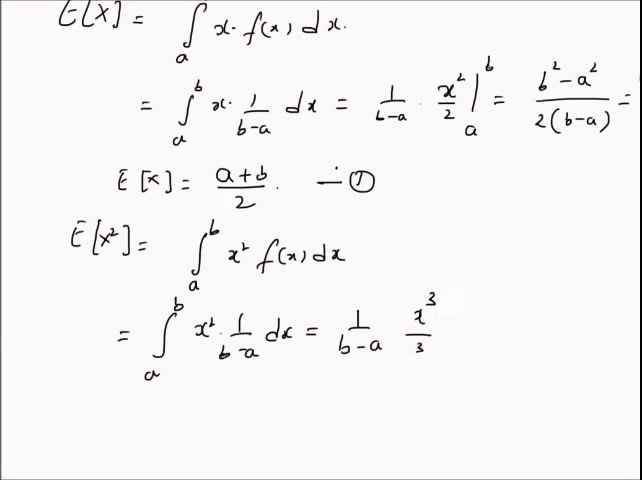 E[X] = ∫ₐ x. f(x) dx.
= ∫ₐᵇ x. 1/(b-a) dx = 1/(b-a) . x²/2 |ₐᵇ = (b²-a²)/(2(b-a)) =
E[x] = (a+b)/2. — ①
E[x²] = ∫ₐᵇ x² f(x) dx
= ∫ₐᵇ x². 1/(b-a) dx = 1/(b-a) x³/3